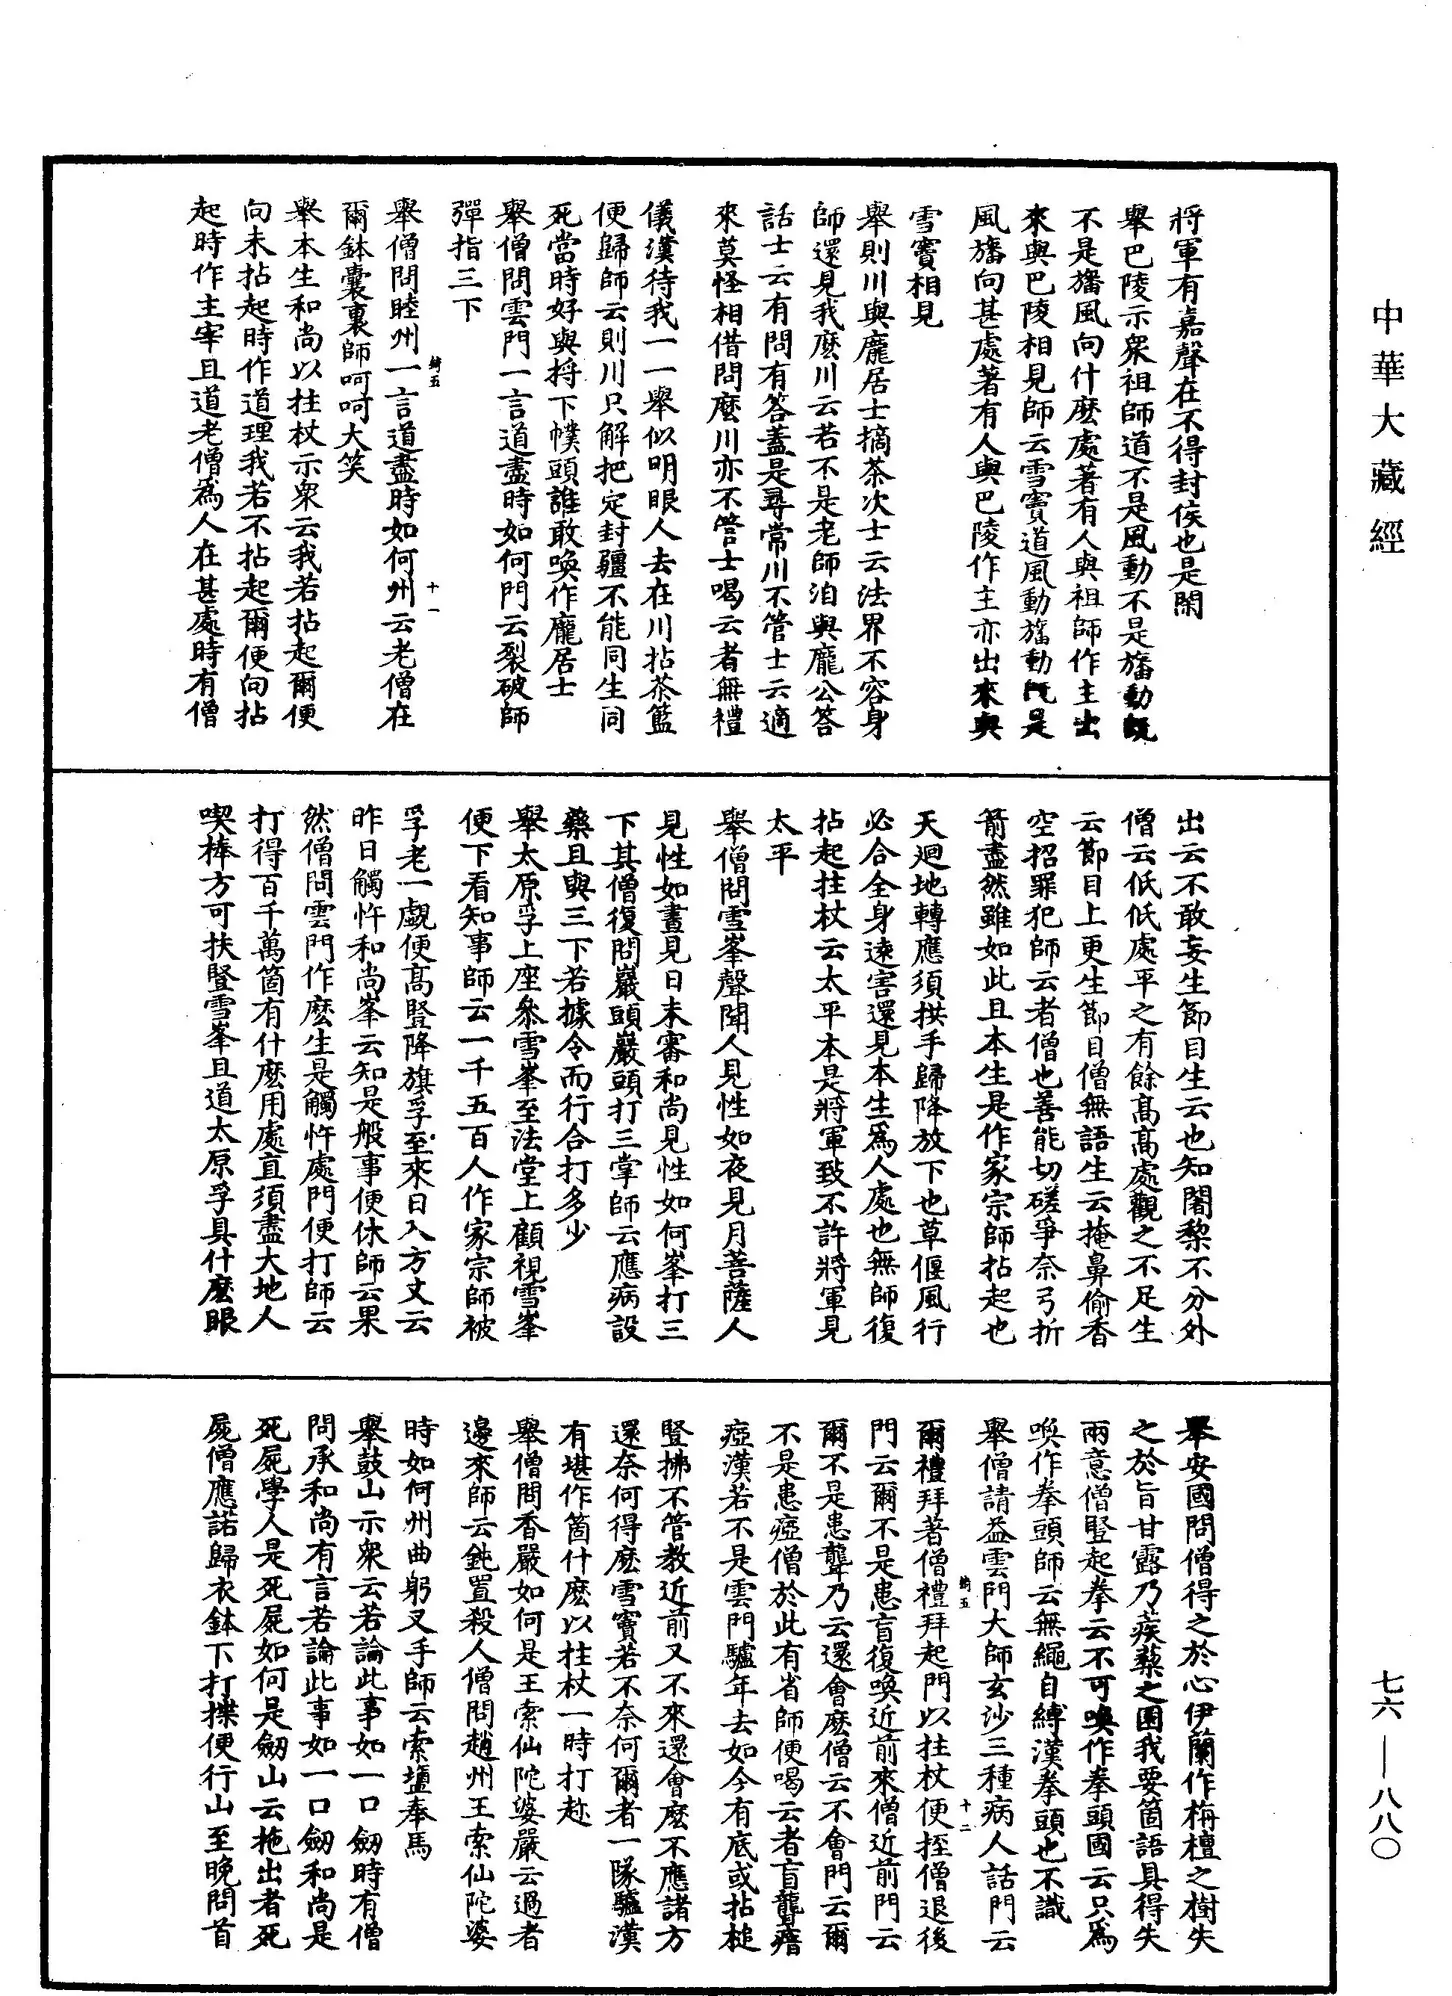 中華大藏經
將軍有嘉聲在不得封侯也是閑
舉巴陵示衆祖師道不是風動不是旛動既
不是旛風向什麼處著有人與祖師作主出
來與巴陵相見師云雪竇道風動旛動既是
風旛向甚處著有人與巴陵作主亦出來與
雪竇相見
舉則川與龐居士摘茶次士云法界不容身
師還見我麼川云若不是老師洎與龐公答
話士云有問有答蓋是尋常川不管士云適
來莫怪相借問麼川亦不管士喝云者無禮
儀漢待我一一舉似明眼人去在川拈茶籃
便歸師云則川只解把定封疆不能同生同
死當時好與捋下幞頭誰敢喚作龐居士
舉僧問雲門一言道盡時如何門云裂破師
彈指三下
舉僧問睦州一言道盡時如何州云老僧在
爾鉢囊裏師呵呵大笑
舉本生和尚以拄杖示衆云我若拈起爾便
向未拈起時作道理我若不拈起爾便向拈
起時作主宰且道老僧爲人在甚處時有僧
出云不敢妄生節目生云也知闍黎不分外
僧云低低處平之有餘高高處觀之不足生
云節目上更生節目僧無語生云掩鼻偷香
空招罪犯師云者僧也善能切磋爭奈弓折
箭盡然雖如此且本生是作家宗師拈起也
天迴地轉應須拱手歸降放下也草偃風行
必合全身遠害還見本生爲人處也無師復
拈起拄杖云太平本是將軍致不許將軍見
太平
舉僧問雪峯聲聞人見性如夜見月菩薩人
見性如晝見日未審和尚見性如何峯打三
下其僧復問巖頭巖頭打三掌師云應病設
藥且與三下若據令而行合打多少
舉太原孚上座參雪峯至法堂上顧視雪峯
便下看知事師云一千五百人作家宗師被
孚老一覷便高豎降旗孚至來日入方丈云
昨日觸忤和尚峯云知是般事便休師云果
然僧問雲門作麼生是觸忤處門便打師云
打得百千萬箇有什麼用處直須盡大地人
喫棒方可扶豎雪峯且道太原孚具什麼眼
舉安國問僧得之於心伊蘭作栴檀之樹失
之於旨甘露乃蒺蔾之園我要箇語具得失
兩意僧豎起拳云不可喚作拳頭國云只爲
喚作拳頭師云無繩自縛漢拳頭也不識
舉僧請益雲門大師玄沙三種病人話門云
爾禮拜著僧禮拜起門以拄杖便挃僧退後
門云爾不是患盲復喚近前來僧近前門云
爾不是患聾乃云還會麼僧云不會門云爾
不是患瘂僧於此有省師便喝云者盲聾瘖
瘂漢若不是雲門驢年去如今有底或拈槌
豎拂不管教近前又不來還會麼不應諸方
還奈何得麼雪竇若不奈何爾者一隊驢漢
有堪作箇什麼以拄杖一時打趁
舉僧問香嚴如何是王索仙陀婆嚴云過者
邊來師云鈍置殺人僧問趙州王索仙陀婆
時如何州曲躬叉手師云索鹽奉馬
舉鼓山示衆云若論此事如一口劒時有僧
問承和尚有言若論此事如一口劒和尚是
死屍學人是死屍如何是劒山云拖出者死
屍僧應諾歸衣鉢下打㩧便行山至晚問首
七六—八八〇